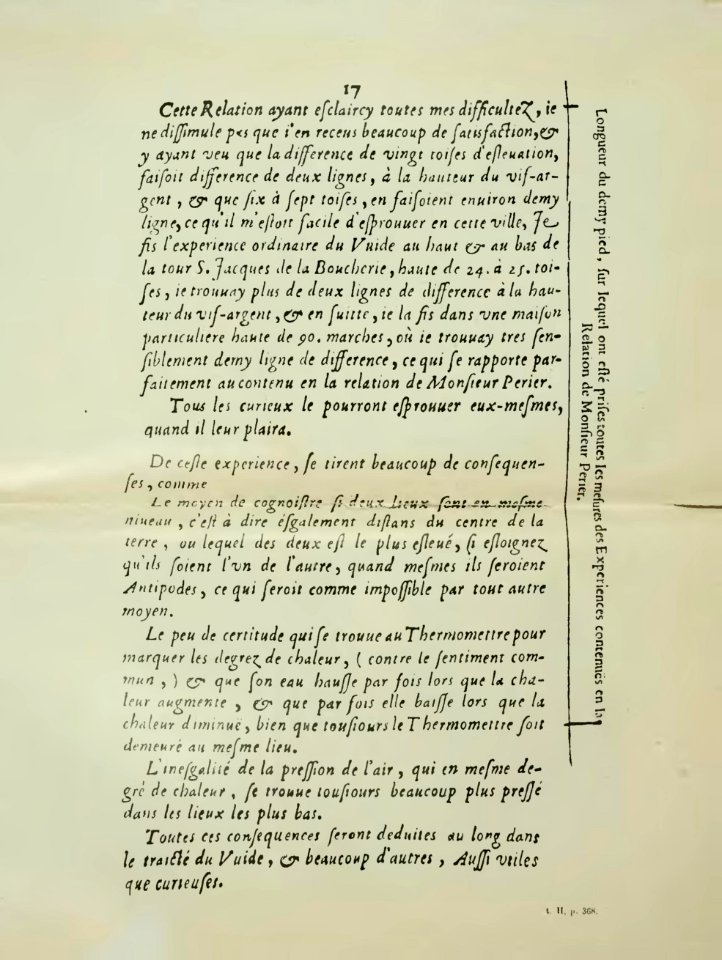 17
Cette Relation ayant eſclaircy toutes mes difficultez, ie
ne diſſimule pas que i'en receus beaucoup de ſatisfaction, &
y ayant veu que la difference de vingt toiſes d'eſleuation,
faiſoit difference de deux lignes, à la hauteur du vif-ar-
gent, & que ſix à ſept toiſes, en faiſoient enuiron demy
ligne, ce qu'il m'eſtoit facile d'eſprouuer en cette ville, Je
fis l'experience ordinaire du Vuide au haut & au bas de
la tour S. Jacques de la Boucherie, haute de 24. à 25. toi-
ſes, ie trouuay plus de deux lignes de difference à la hau-
teur du vif-argent, & en ſuitte, ie la fis dans vne maiſon
particuliere haute de 90. marches, où ie trouuay tres ſen-
ſiblement demy ligne de difference, ce qui ſe rapporte par-
faitement au contenu en la relation de Monſieur Perier.
Tous les curieux le pourront eſprouuer eux-meſmes,
quand il leur plaira.
De ceſte experience, ſe tirent beaucoup de conſequen-
ſes, comme
Le moyen de cognoiſtre ſi deux lieux ſont en meſme
niueau, c'eſt à dire éſgalement diſtans du centre de la
terre, ou lequel des deux eſt le plus eſleué, ſi eſloignez
qu'ils ſoient l'vn de l'autre, quand meſmes ils ſeroient
Antipodes, ce qui ſeroit comme impoſſible par tout autre
moyen.
Le peu de certitude qui ſe trouue au Thermomettre pour
marquer les degrez de chaleur, ( contre le ſentiment com-
mun , ) & que ſon eau hauſſe par fois lors que la cha-
leur augmente, & que par fois elle baiſſe lors que la
chaleur diminuë, bien que touſiours le Thermomettre ſoit
demeuré au meſme lieu.
L'ineſgalité de la preſſion de l'air, qui en meſme de-
gré de chaleur, ſe trouue touſiours beaucoup plus preſſé
dans les lieux les plus bas.
Toutes ces conſequences ſeront deduites au long dans
le traicté du Vuide, & beaucoup d'autres, Auſſi vtiles
que curieuſes.
Longueur du demy pied, ſur lequel ont eſté priſes toutes les meſures des Experiences contenues en la
Relation de Monſieur Perier.
t. II, p. 368.